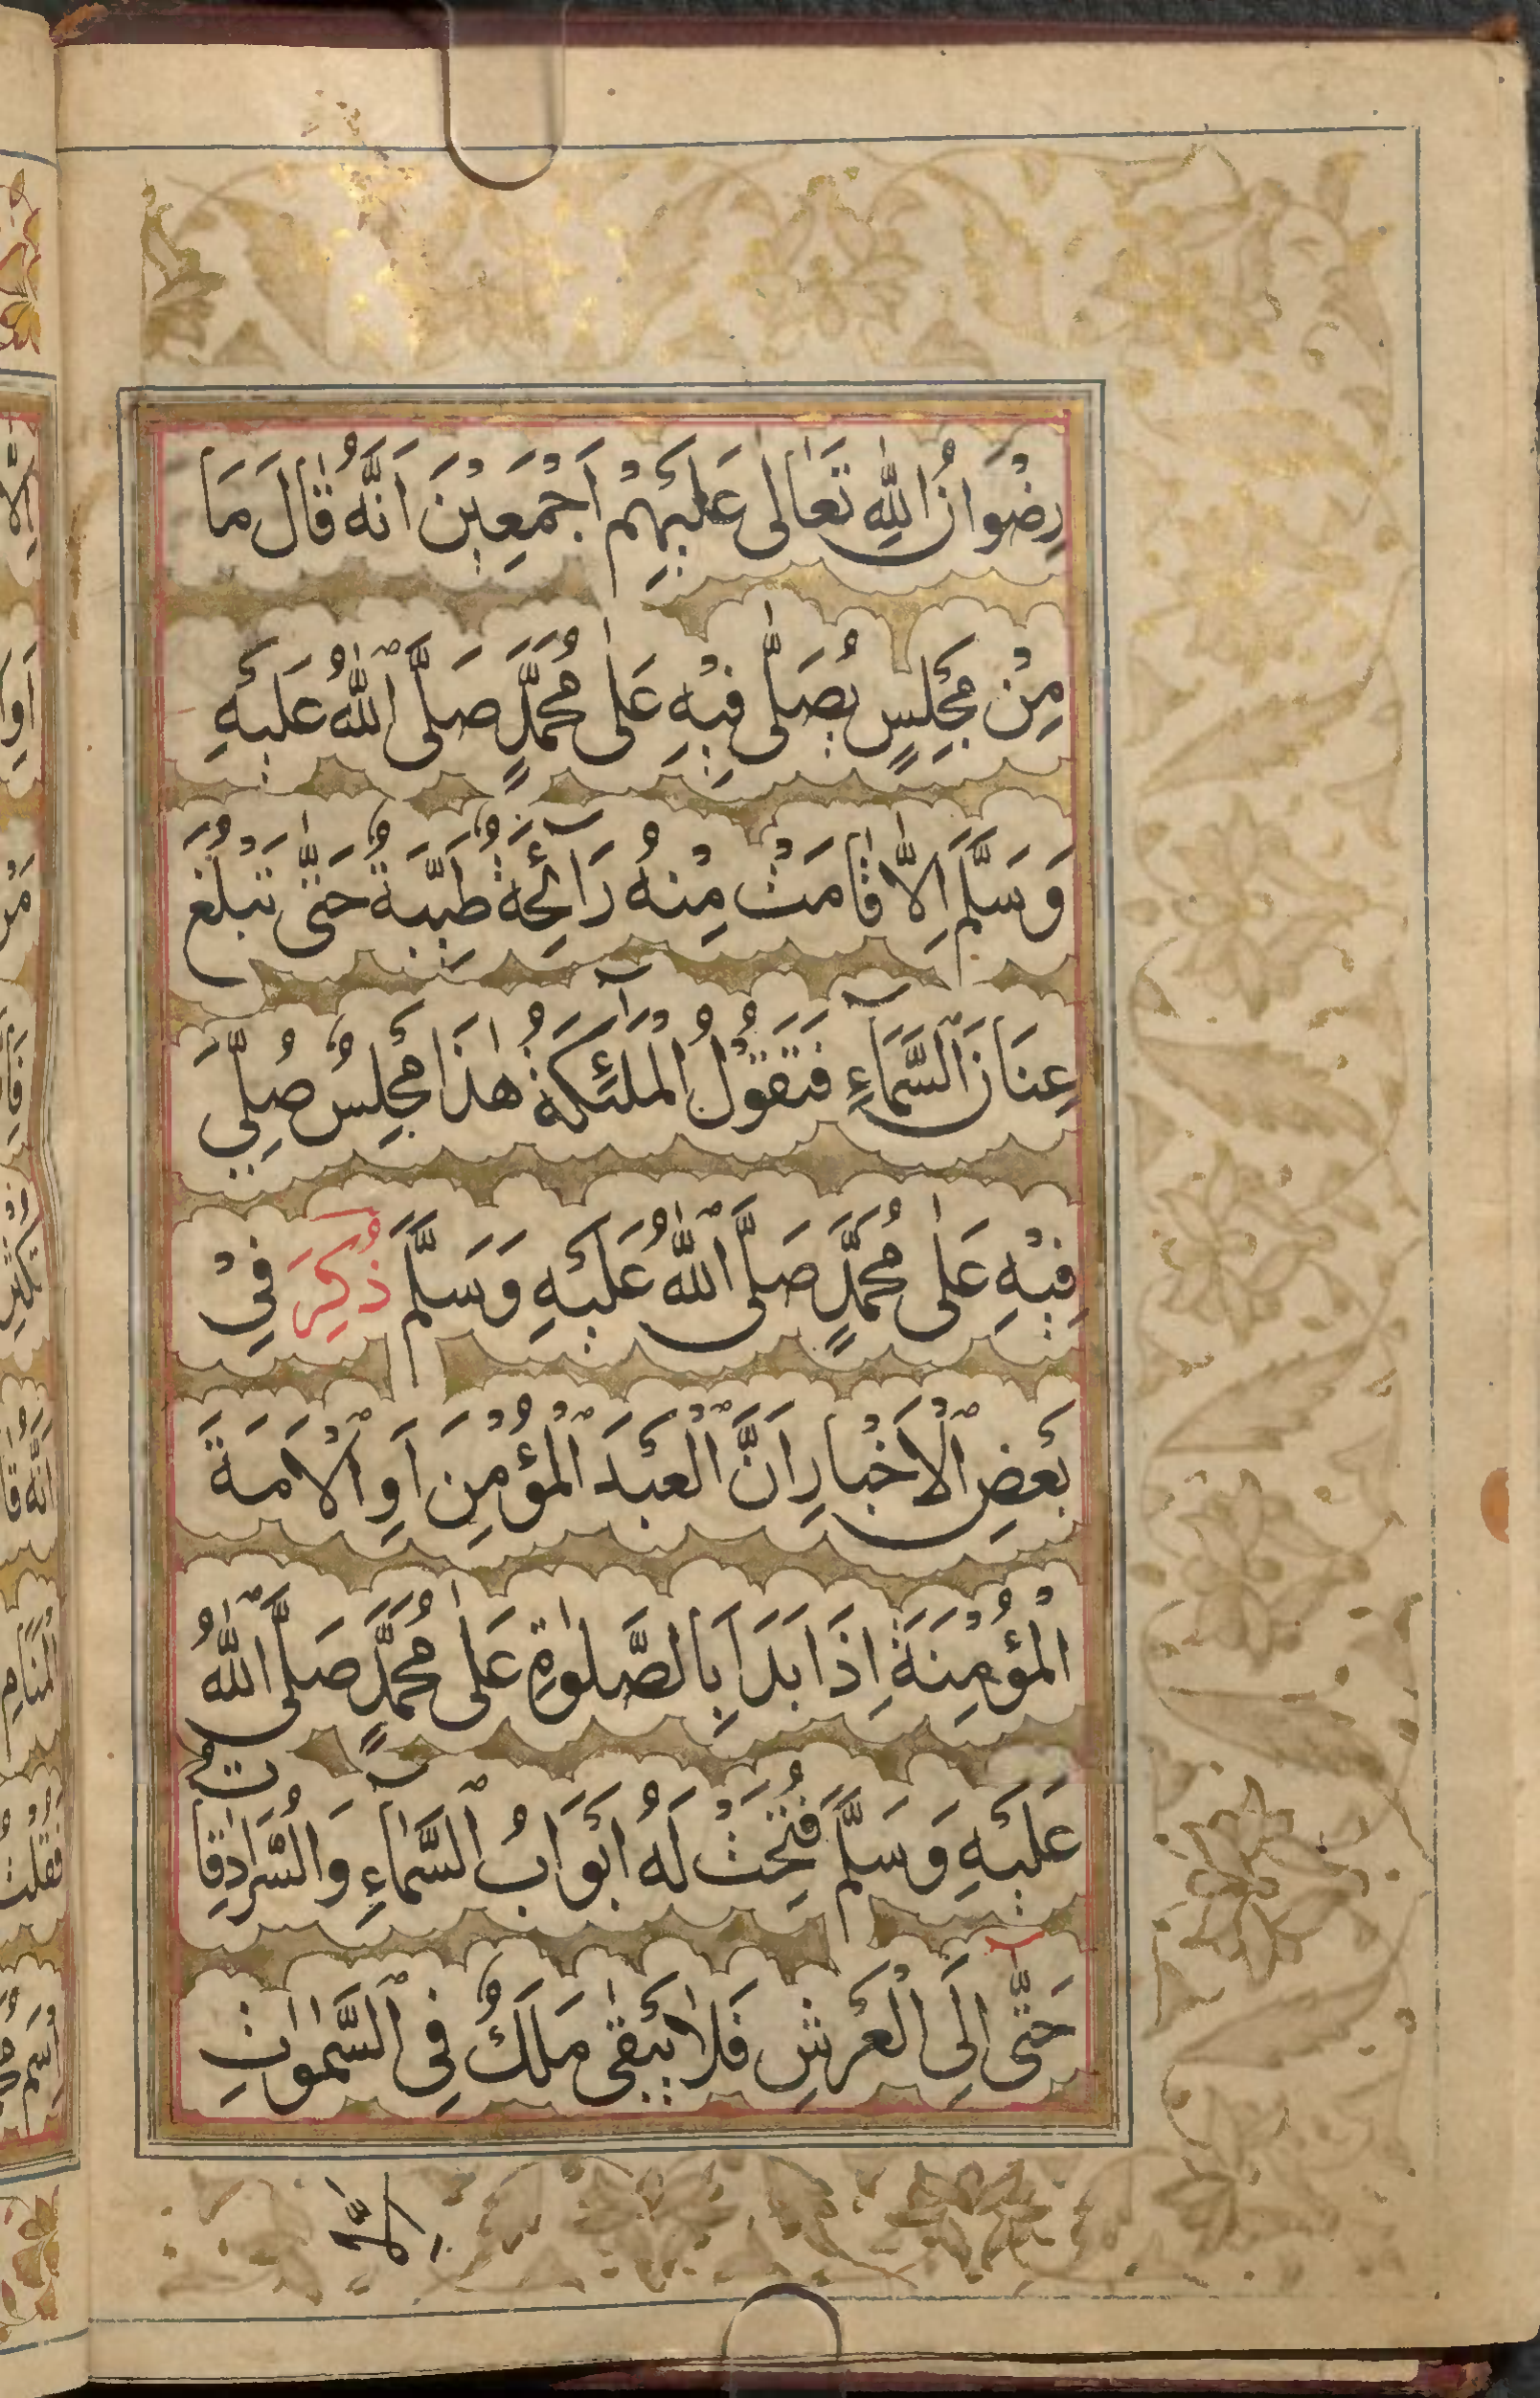 رِضْوَانُ اللّٰهِ تَعَالٰى عَلَيْهِمْ اَجْمَعِيْنَ اَنَّهُ قَالَ مَا
مِنْ مَجْلِسٍ يُصَلّٰى فِيْهِ عَلٰى مُحَمَّدٍ صَلَّى اللّٰهُ عَلَيْهِ
وَسَلَّمَ اِلَّا قَامَتْ مِنْهُ رَآئِحَةٌ طَيِّبَةٌ حَتّٰى تَبْلُغَ
عِنَانَ السَّمَآءِ فَتَقُوْلُ الْمَلٰٓئِكَةُ هٰذَا مَجْلِسٌ صُلِّيَ
فِيْهِ عَلٰى مُحَمَّدٍ صَلَّى اللّٰهُ عَلَيْهِ وَسَلَّمَ ذُكِرَ فِيْ
بَعْضِ الْاَخْبَارِ اَنَّ الْعَبْدَ الْمُؤْمِنَ اَوِ الْاَمَةَ
الْمُؤْمِنَةَ اِذَا بَدَاَ بِالصَّلٰوةِ عَلٰى مُحَمَّدٍ صَلَّى اللّٰهُ
عَلَيْهِ وَسَلَّمَ فُتِحَتْ لَهُ اَبْوَابُ السَّمَآءِ وَالسُّرَادِقَاتُ
حَتّٰٓى اِلَى الْعَرْشِ فَلَا يَبْقٰى مَلَكٌ فِى السَّمٰوَاتِ
اِلَّا